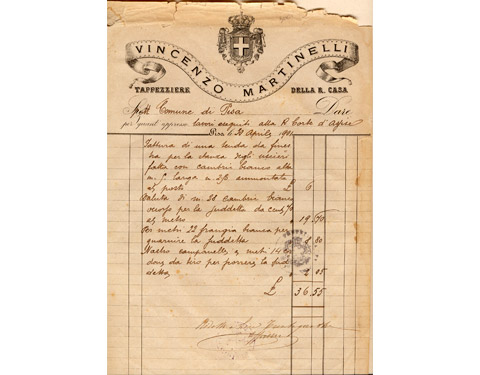 VINCENZO MARTINELLI
TAPPEZZIERE DELLA R. CASA
Comune di Pisa Dare
per quanto appresso lavori eseguiti alla R. Corte d'
Pisa 30 Aprile
Fattura di una tenda da fines
tra per la stanza degli uscieri
fatta con cambrì bianco alta
m. larga m. ammontata
al posto £ 6
Valuta di m. 28 cambrì bianco
per la suddetta da
al metro 19.70
Per metri 22 frangia bianca per
guarnire la suddetta 8.80
Nastro campanelle e metri 14 cor
done da tiro per la sud
detta 2 05
£ 36.55